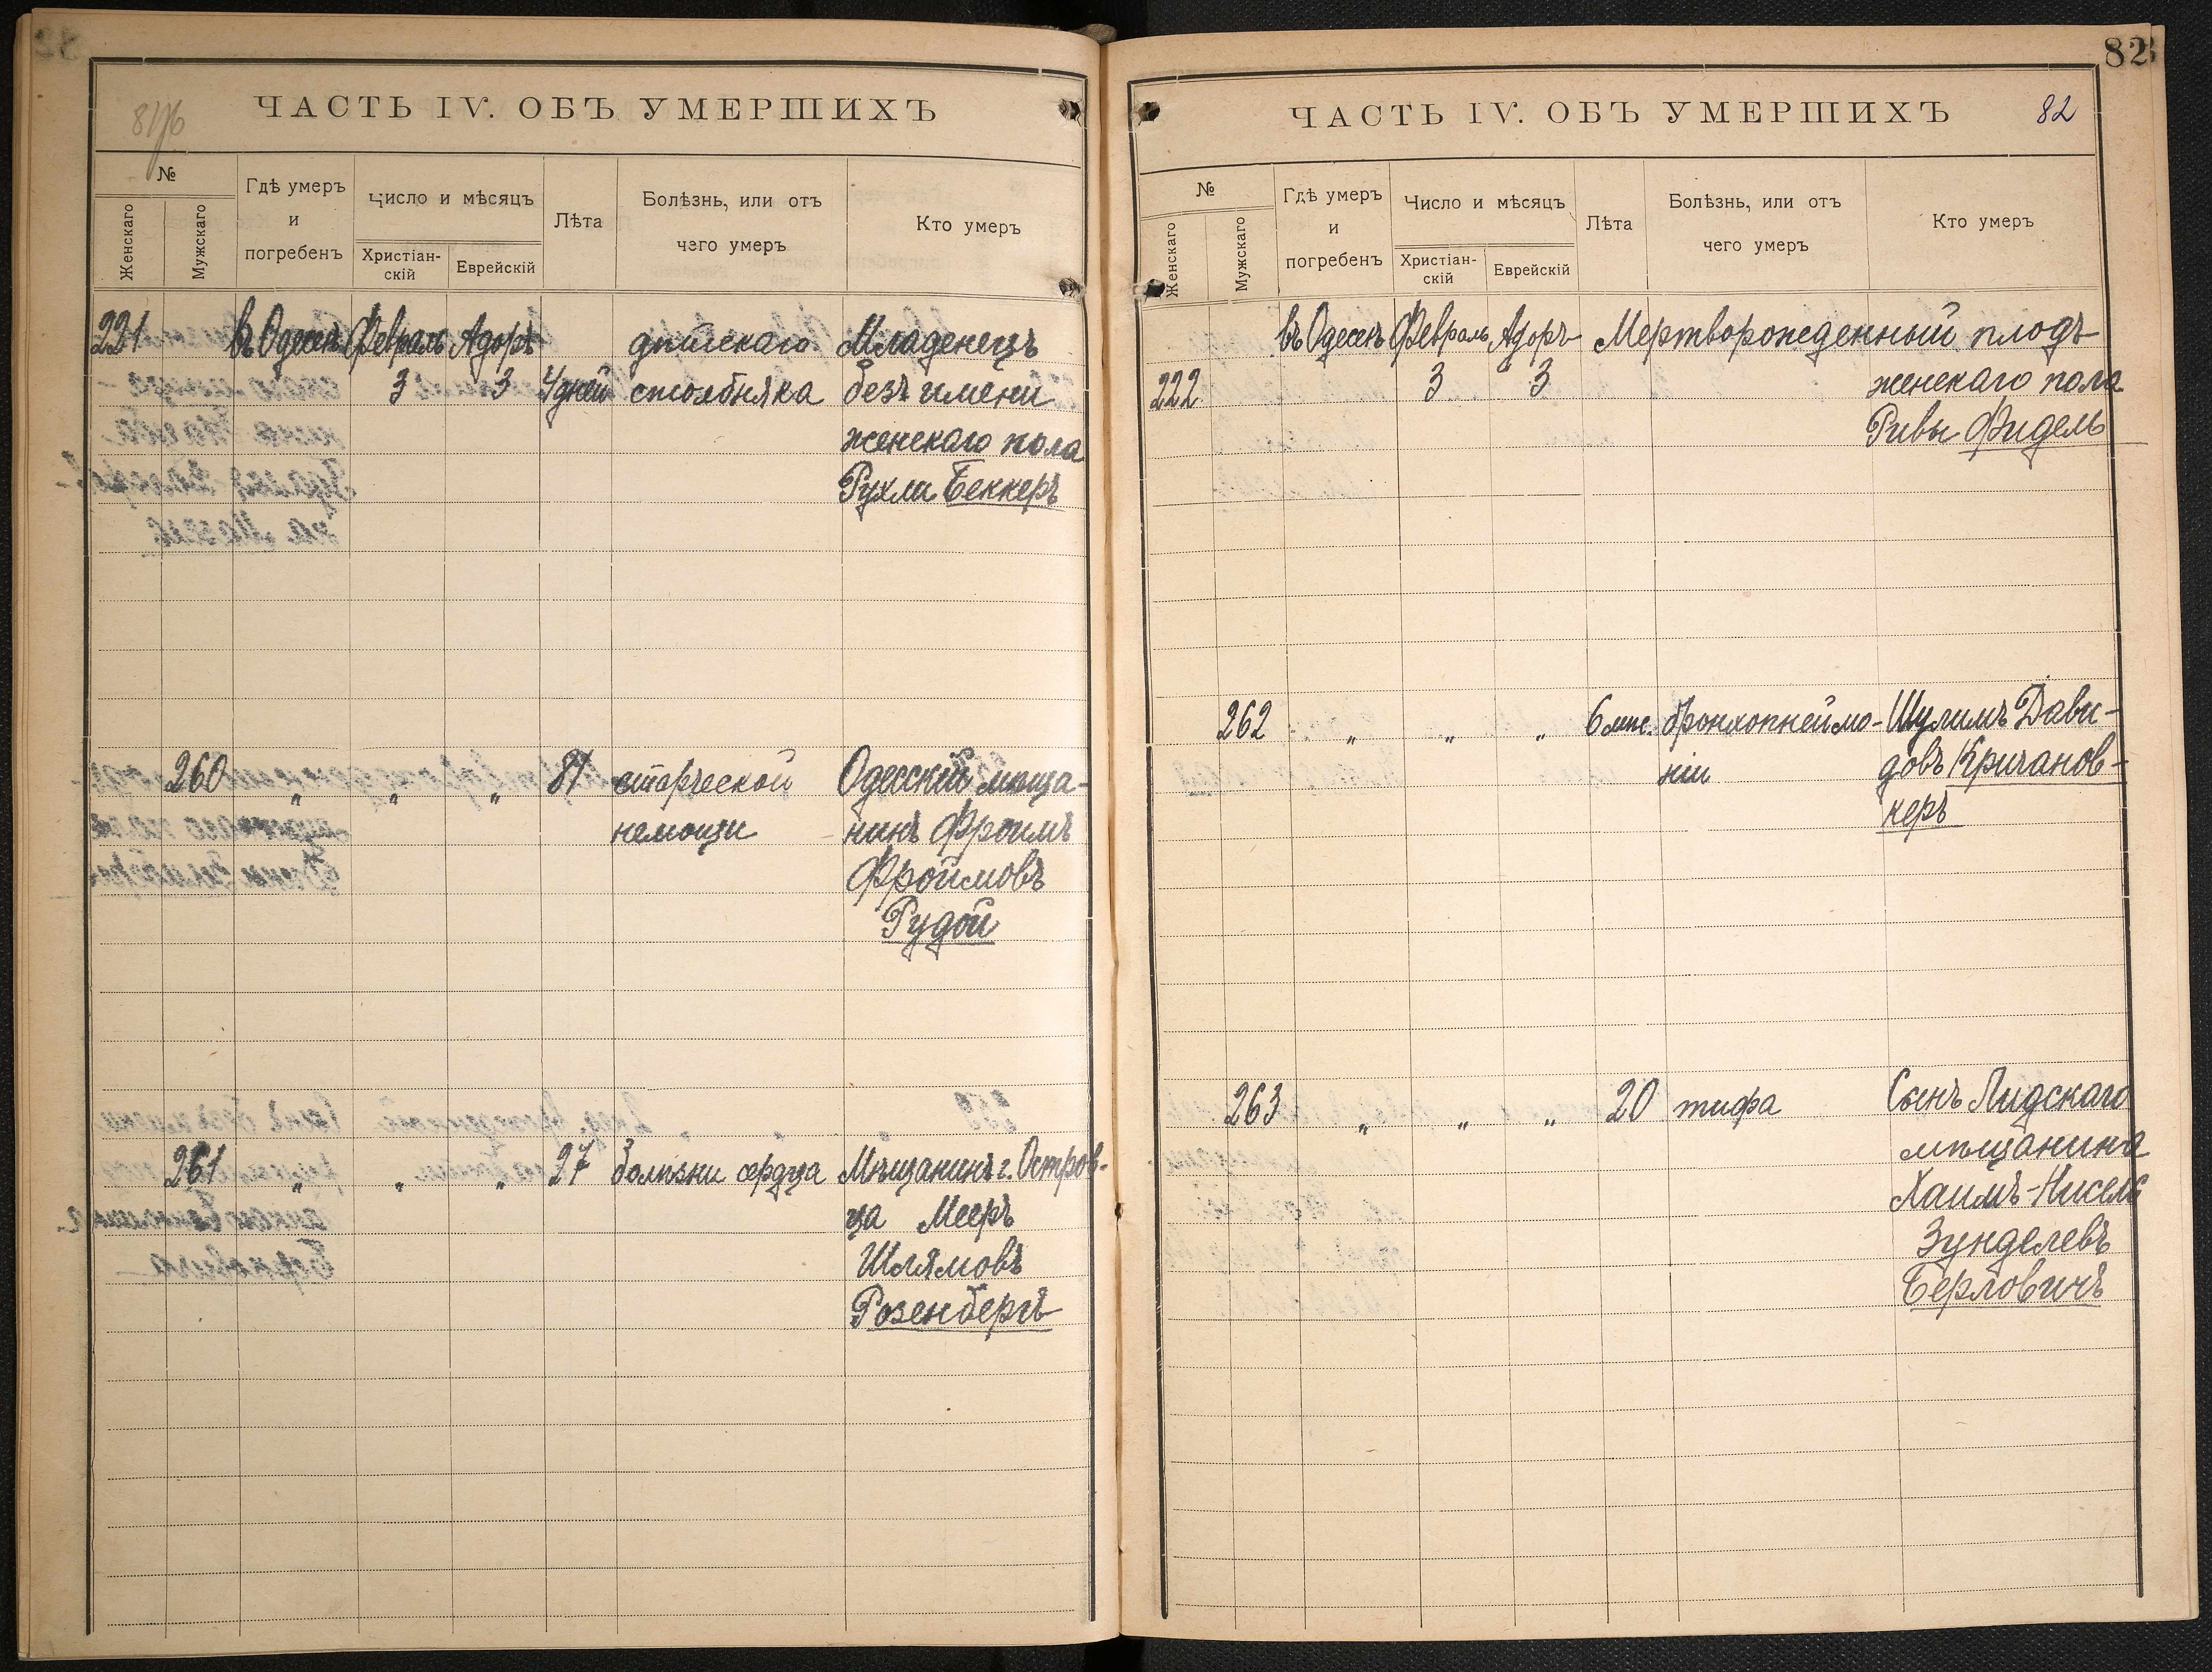 ЧАСТЬ IV. ОБЪ УМЕРШИХЪ
№
Женскаго
Мужскаго
Гдѣ умеръ
и
погребенъ
Число и мѣсяцъ
Христіан-
скій
Еврейскій
Лѣта
Болѣзнь, или отъ
чего умеръ
Кто умеръ
221 въ Одессѣ Февраль Адоръ дѣтскаго Младенецъ
3 3 4 дней столбняка безъ имени
женскаго пола
Рухли Беккеръ
260 " " " 81 старческой Одесскій мѣща-
немощи нинъ Фроимъ
Фроимовъ
Рудой
261 " " " 27 болѣзни сердца Мѣщанинъ г. Остров-
ца Мееръ
Шлямовъ
Розенбергъ
82
ЧАСТЬ IV. ОБЪ УМЕРШИХЪ 82
№
Женскаго
Мужскаго
Гдѣ умеръ
и
погребенъ
Число и мѣсяцъ
Христіан-
скій
Еврейскій
Лѣта
Болѣзнь, или отъ
чего умеръ
Кто умеръ
въ Одессѣ Февраль Адоръ Мертворожденный плодъ
222 3 3 женскаго пола
Ривы Фидель
262 " " " 6 мѣс. бронхопнеймо- Шулимъ Дави-
ніи довъ Кричанов-
керъ
263 " " " 20 тифа Сынъ Лидскаго
мѣщанина
Хаимъ-Нисель
Зунделевъ
Берловичъ